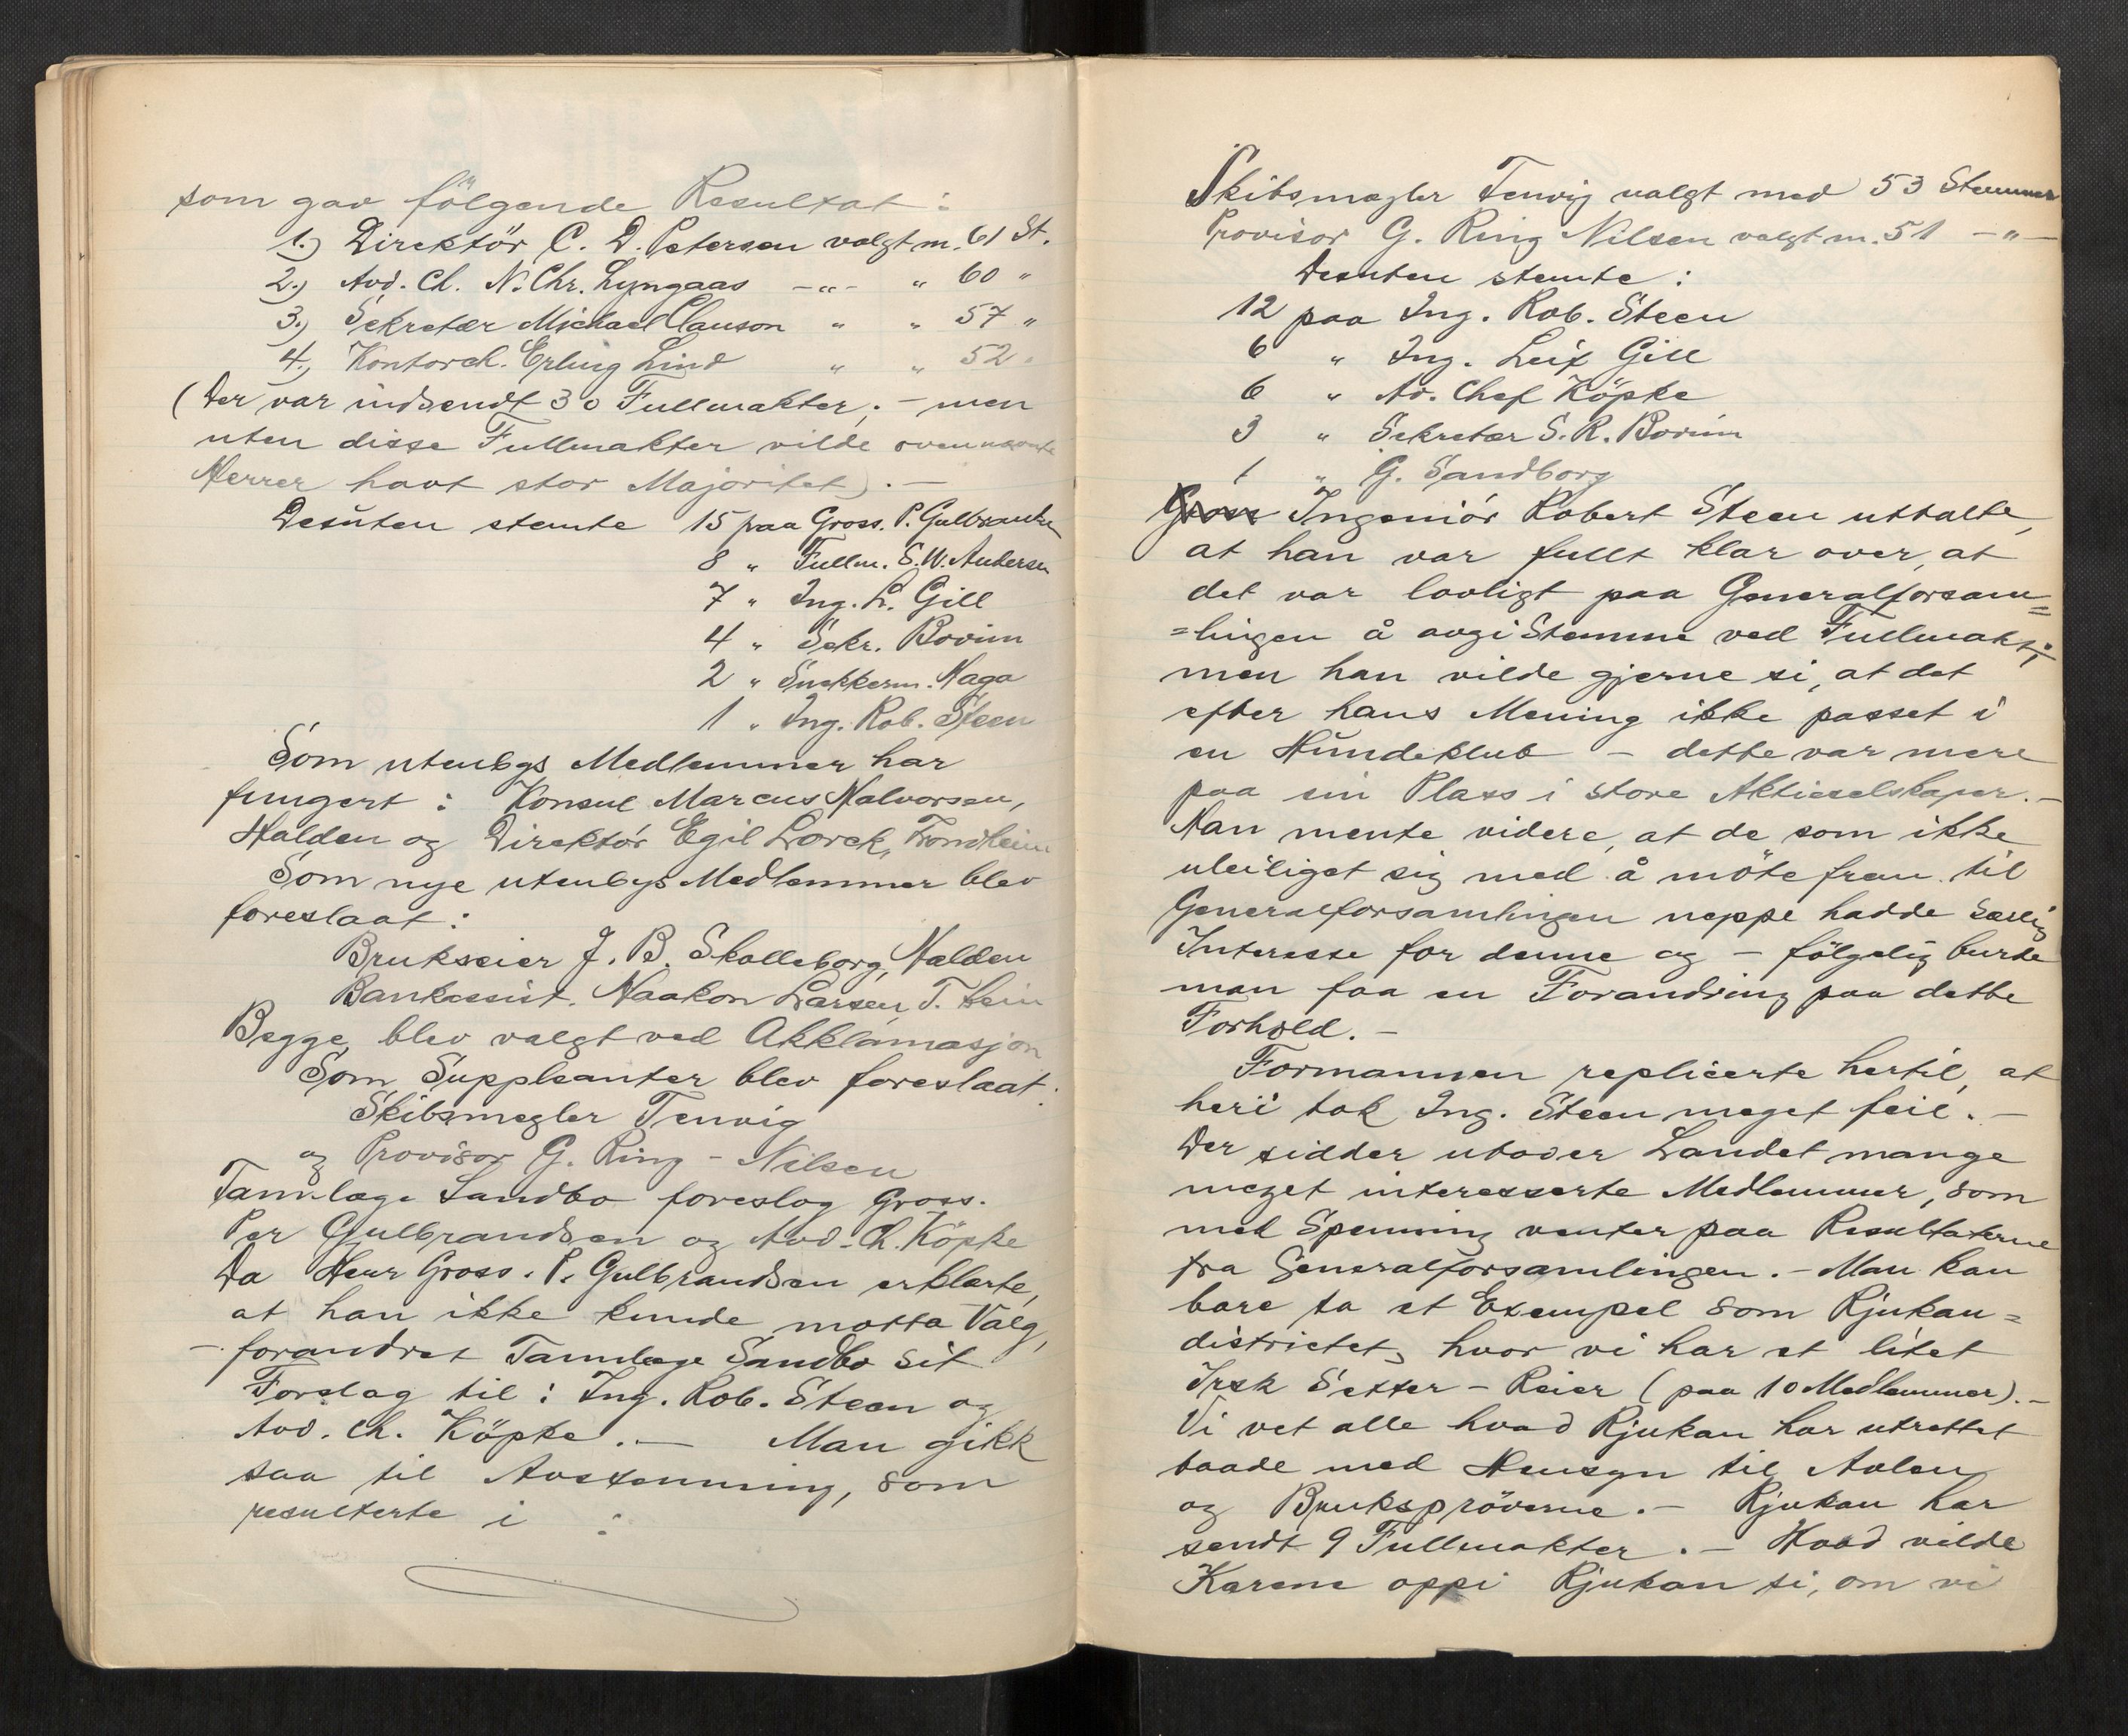 som gav fölgende Resultat :
1.) Direktör C. D. Petersen valgt m. 61 St.
2.) Avd. Ch. N. Chr. Lyngaas -"- " 60 "
3.) Sekretær Michael Clauson " " 57 "
4.) Kontorch. Erling Lind " " 52 "
(Der var indsendt 30 Fullmakter, - men
uten disse Fullmakter vilde ovennævnte
Herrer havt stor Majoritet). -
Desuten stemte 15 paa Gross. P. Gulbrandsen
8 " Fullm. S. W. Andersen
7 " Ing. L. Gill
4 " Sekr. Bovim
2 " Snekkerm. Haga
1 " Ing. Rob. Steen
Som utenbys Medlemmer har
fungert : Konsul Marcus Halvorsen,
Halden og Direktör Egil Lorck, Trondheim
Som nye utenbys Medlemmer blev
foreslaat :
Brukseier J. B. Skolleborg, Halden
Bankassist. Haakon Larsen, T. heim
Begge blev valgt ved Akklamasjon
Som Suppleanter blev foreslaat :
Skibsmegler Tenvig
og Provisor G. Ring - Nilsen
Tannlæge Sandbo foreslog Gross.
Per Gulbrandsen og Avd. Ch. Köpke
Da Herr Gross. P. Gulbrandsen erklærte,
at han ikke kunde motta Valg,
- forandret Tannlæge Sandbo sit
Forslag til : Ing. Rob. Steen og
Avd. Ch. Köpke. - Man gikk
saa til Avstemning, som
resulterte i :
Skibsmægler Tenvig valgt med 53 Stemmer
Provisor G. Ring Nilsen valgt m. 51 -"-
Desuten stemte :
12 paa Ing. Rob. Steen
6 " Ing. Leif Gill
6 " Av. Chef Köpke
3 " Sekretær S. R. Bovim
1 " G. Sandborg
Gross Ingeniör Robert Steen uttalte,
at han var fullt klar over, at
det var lovligt paa Generalforsam=
=lingen å avgi Stemme ved Fullmakt;
men han vilde gjerne si, at det
efter hans Mening ikke passet i
en Hundeklub - dette var mere
paa sin Plass i store Aktieselskaper. -
Han mente videre, at de som ikke
uleiliget sig med å möte frem til
Generalforsamlingen neppe hadde særlig
Interesse for denne og - fölgelig burde
man faa en Forandring paa dette
Forhold. -
Formannen replicerte hertil, at
heri tok Ing. Steen meget feil. -
Der sidder utover Landet mange
meget interesserte Medlemmer, som
med Spenning venter paa Resultaterne
fra Generalforsamlingen. - Man kan
bare ta et Exempel som Rjukan=
districtet, hvor vi har et litet
Irsk Setter - Reier (paa 10 Medlemmer). -
Vi vet alle hvad Rjukan har utrettet
baade med Hensyn til Avlen
og Brukspröverne. - Rjukan har
sendt 9 Fullmakter. - Hvad vilde
Karene oppi Rjukan si, om vi